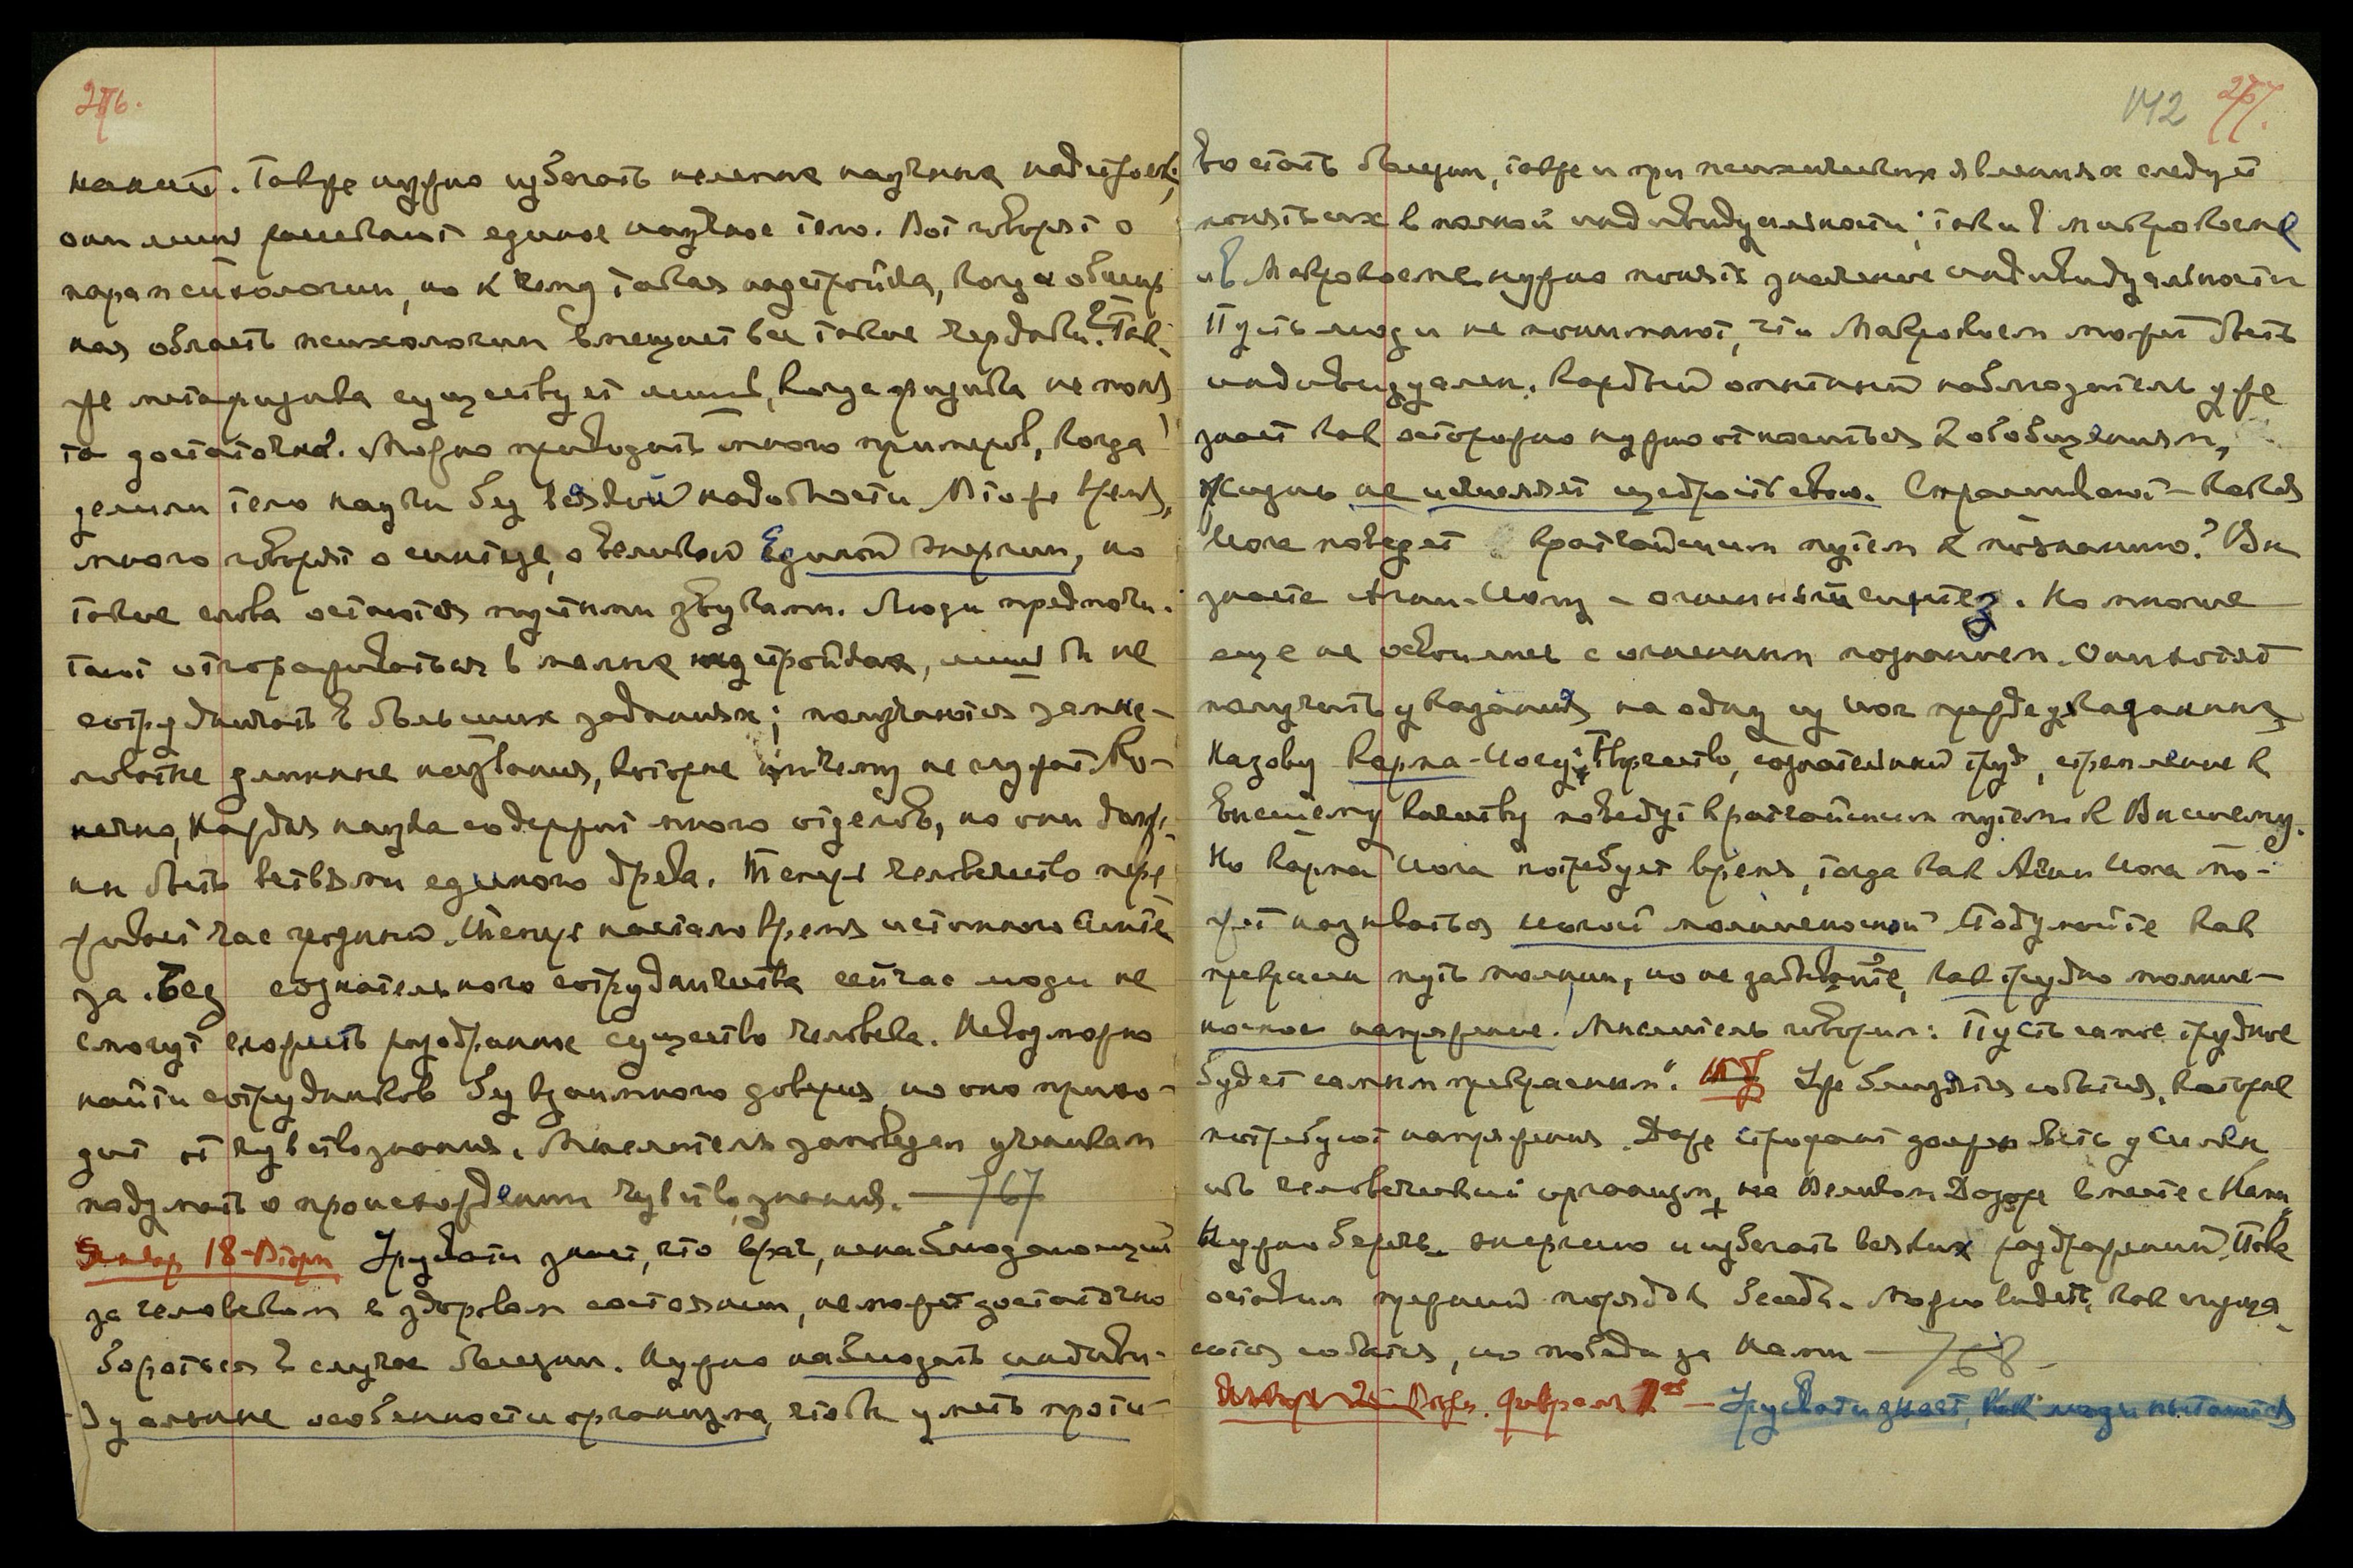 256.
наний. Также нужно избегать нелепых научных надстроек,
они лишь рассекают единое научное тело. Вот говорят о
парапсихологии, но к чему такая надстройка, когда обшир
ная область психологии вмещает все такие чердаки? Так-
же метафизика существует лишь, когда физика не поня
та достаточно. Можно приводить много примеров, когда
делили тело науки без всякой надобности. В то же время,
много говорят о синтезе, о великой Единой энергии, но
такие слова остаются пустыми звуками. Люди предпочи-
тают отгораживаться в малых надстройках, лишь бы не
сотрудничать в больших заданиях; получаются замыс-
ловатые длинные названия, которые ни к чему не служат. Ко-
нечно, каждая наука содержит много отделов, но они долж-
ны быть ветвями единого древа. Теперь человечество пере
живает час грозный. Теперь настало время истинного синте
за. Без сознательного сотрудничества сейчас люди не
смогут сложить раздробленное существо человека. Невозможно
найти сотрудников без взаимного доверия, но оно прихо-
дит от чувствознания. Мыслитель заповедал ученикам
подумать о происхождении чувствознания. — 767
Январь 18 – Вторн Урусвати знает, что врач, не наблюдающий
за человеком в здоровом состоянии, не может достаточно
бороться в случае болезни. Нужно наблюдать индиви-
дуальные особенности организма, чтобы уметь проти-
142 257.
востать болезни, также и при психических явлениях следует
понять их в полной индивидуальности; так и в микрокосме
и в Макрокосме нужно понять значение индивидуальности
Пусть люди не понимают, что Макрокосм может быть
индивидуален. Каждый опытный наблюдатель уже
знает как осторожно нужно относиться к обобщениям,
Жизнь не исчисляет щедрость свою. Спрашивают – какая
Йога поведет кратчайшим путем к познанию? Вы
знаете Агни-Йогу – огненный синтез. Но многие
еще не освоились с огненным познанием. Они хотят
получить указания на одну из Йог прежде указанных,
Назову Карма-Йогу: Творчество, сознательный труд, стремление к
высшему качеству поведут кратчайшим путем к Высшему.
Но Карма Йога потребует время, тогда как Агни Йога мо-
жет называться Йогой молниеносной. Подумайте как
прекрасен путь молнии, но не забывайте, как трудно молние-
носное напряжение. Мыслитель говорил: Пусть самое трудное
будет самым прекрасным". Уже близятся события, которые
потребуют напряжения. Даже страдают должно быть усилены
человеческий организм, на Великом Дозоре вместе с Нами
Нужно беречь энергию и избегать всяких раздражений. Пока
оставим прежний порядок бесед. Можно видеть, как сгуща
ются события, но победа за Нами — 768 –
Январь 25 – Вторн. Февраль 1ое – Урусвати знает, как люди пытаются